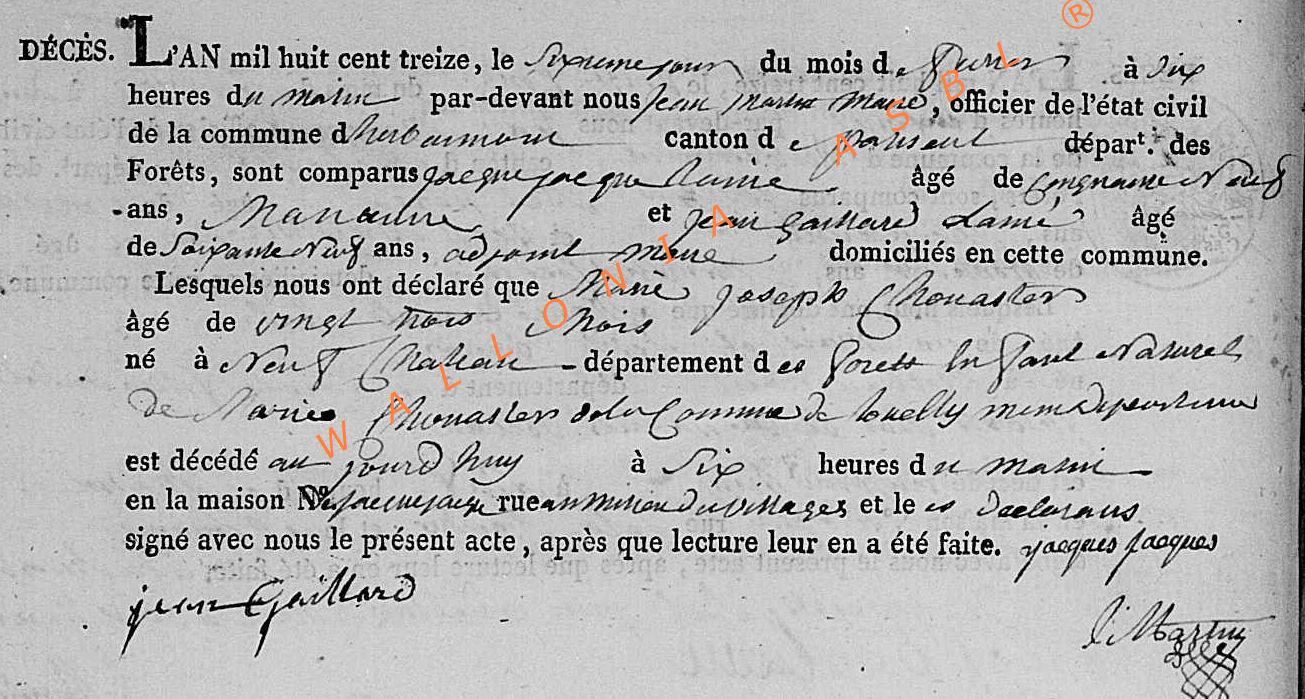 DÉCÈS. L'AN mil huit cent treize, le Sixieme jour du mois de fevrier à Six
heures du matin par-devant nous jean martin maire, officier de l'état civil
de la commune d'herbeumont canton de paliseul départ.t des
Forêts, sont comparus jacque jacque lainé âgé de Cinquante Neuf
ans, Manœuvre et jean Gaillard Lainé âgé
de Soixante Neuf ans, adjoint maire domiciliés en cette commune.
Lesquels nous ont déclaré que Marie joseph Chouaster
âgé de vingt trois Mois
né à Neuf Chateau département des forets Enfant Naturel
de Marie Chouaster de la Commune de même departement
est décédé aujourd huy à Six heures du matin
en la maison N° de jacque jacque rue au milieu du village et les declarans
signé avec nous le présent acte, après que lecture leur en a été faite. jacques jacques
jean Gaillard
j Martin
WALLONIA ASBL ®